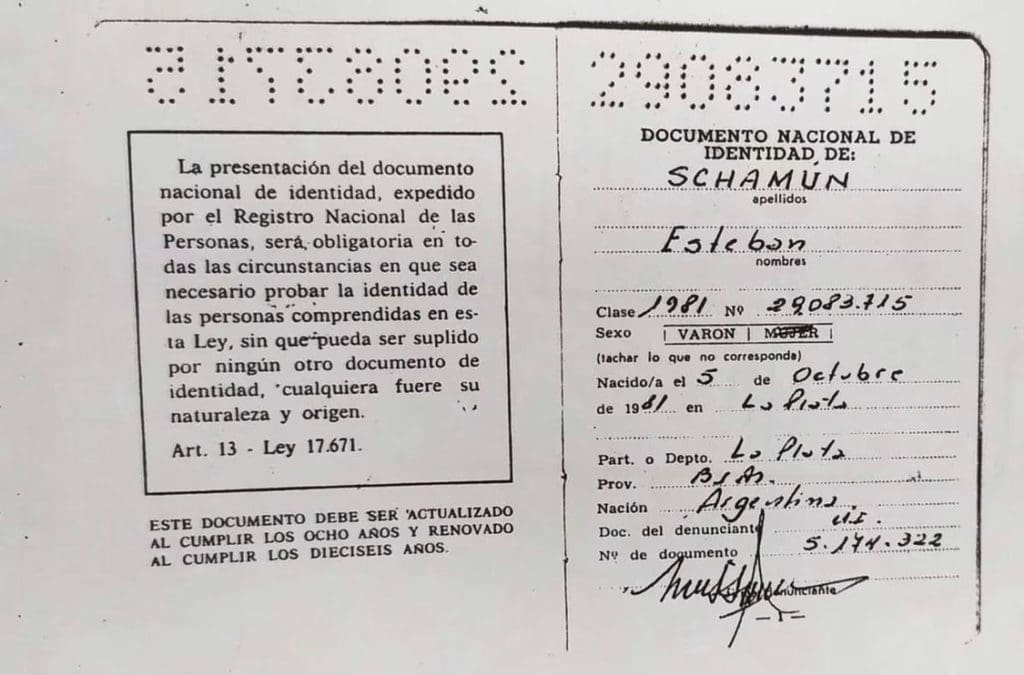 29083715
La presentación del documento
nacional de identidad, expedido
por el Registro Nacional de las
Personas, será, obligatoria en to-
das las circunstancias en que sea
necesario probar la identidad de
las personas comprendidas en es-
ta Ley, sin que pueda ser suplido
por ningún otro documento de
identidad, cualquiera fuere su
naturaleza y origen.
Art. 13 - Ley 17.671.
ESTE DOCUMENTO DEBE SER ACTUALIZADO
AL CUMPLIR LOS OCHO AÑOS Y RENOVADO
AL CUMPLIR LOS DIECISEIS AÑOS.
29083715
DOCUMENTO NACIONAL DE
IDENTIDAD DE:
SCHAMÚN
apellidos
Esteban
nombres
Clase 1981 Nº 29083.715
Sexo VARON MUJER
(tachar lo que no corresponda)
Nacido/a el 5 de Octubre
de 1981 en La Plata
Part. o Depto. La Plata
Prov. Bs As.
Nación Argentina.
Doc. del denunciante
Nº de documento 5.174.322
denunciante